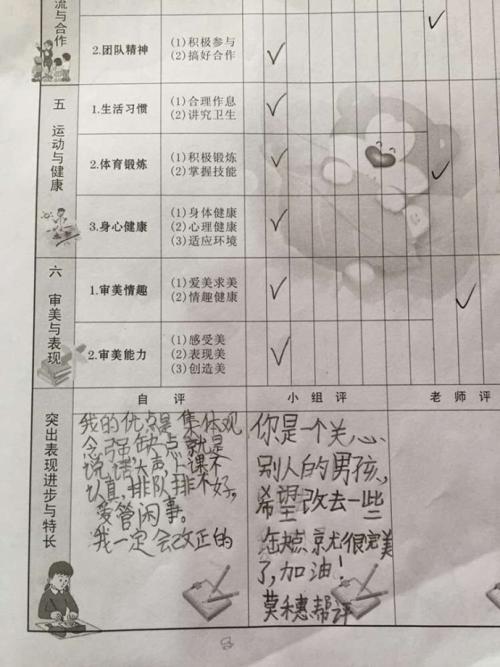 流与合作
2.团队精神
(1)积极参与
(2)搞好合作
五 运动与健康
1.生活习惯
(1)合理作息
(2)讲究卫生
2.体育锻炼
(1)积极锻炼
(2)掌握技能
3.身心健康
(1)身体健康
(2)心理健康
(3)适应环境
六 审美与表现
1.审美情趣
(1)爱美求美
(2)情趣健康
2.审美能力
(1)感受美
(2)表现美
(3)创造美
突出表现进步与特长
自评
我的优点是集体观
念强,缺点就是
说话大声,上课不
认真,排队排不好。
爱管闲事。
我一定会改正的
小组评
你是一个关心
别人的男孩,
希望改去一些
缺点就很完美
了,加油!
莫穗帮评
老师评